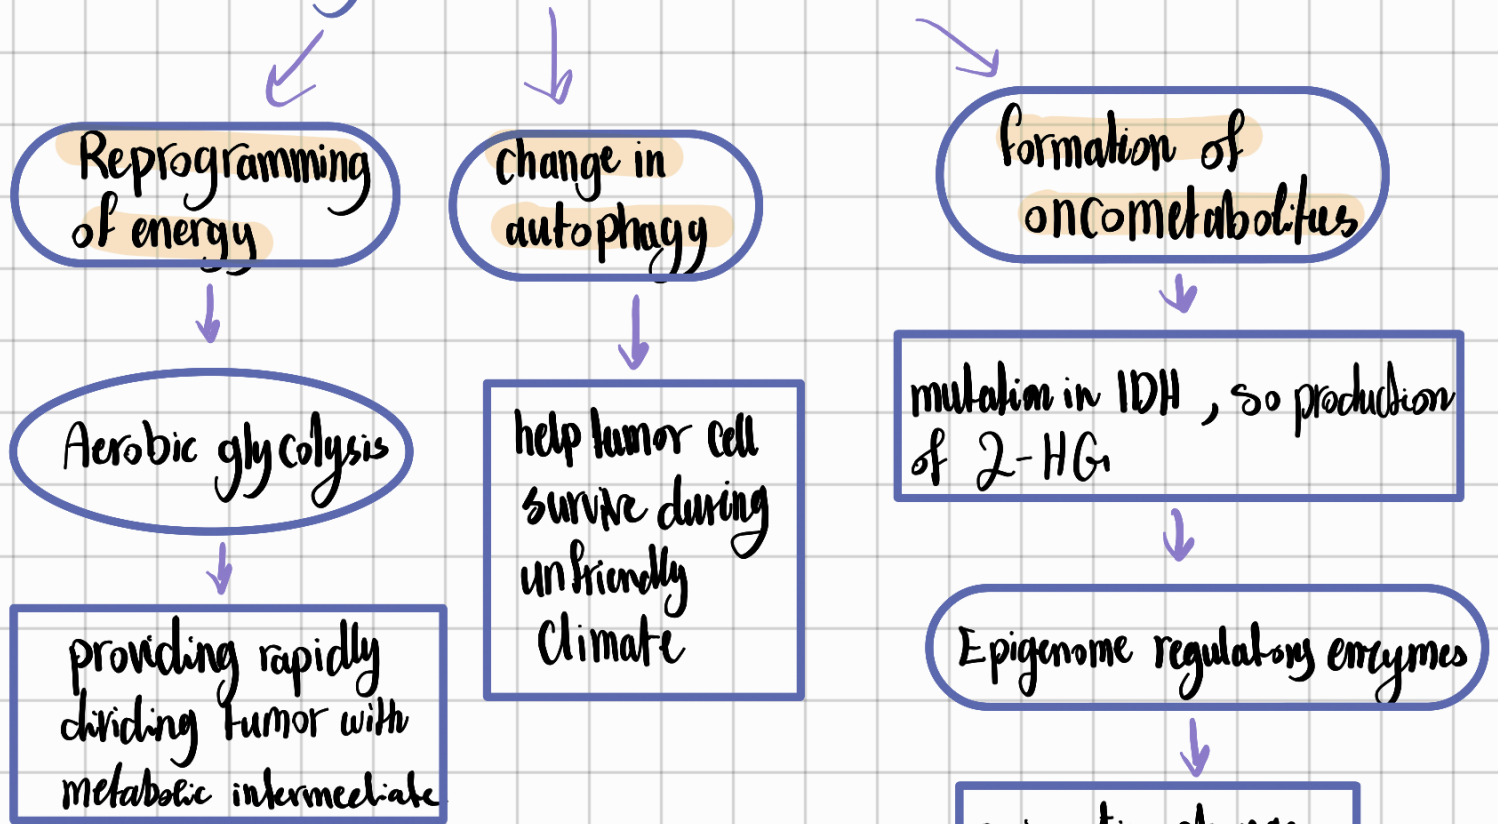 Reprogramming
of energy
Aerobic glycolysis
providing rapidly
dividing tumor with
metabolic intermediate
change in
autophagy
help tumor cell
survive during
unfriendly
climate
formation of
oncometabolites
mutation in IDH , so production
of 2-HG
Epigenome regulatory enzymes